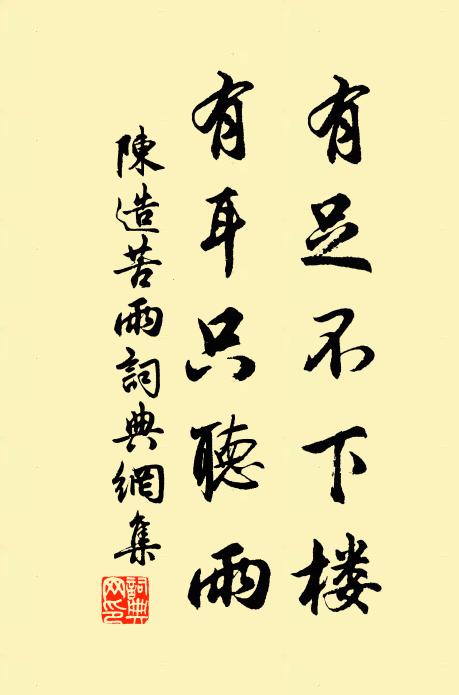 有足不下楼
有耳只聽雨
陳造苦雨詞典網集
詞典网印